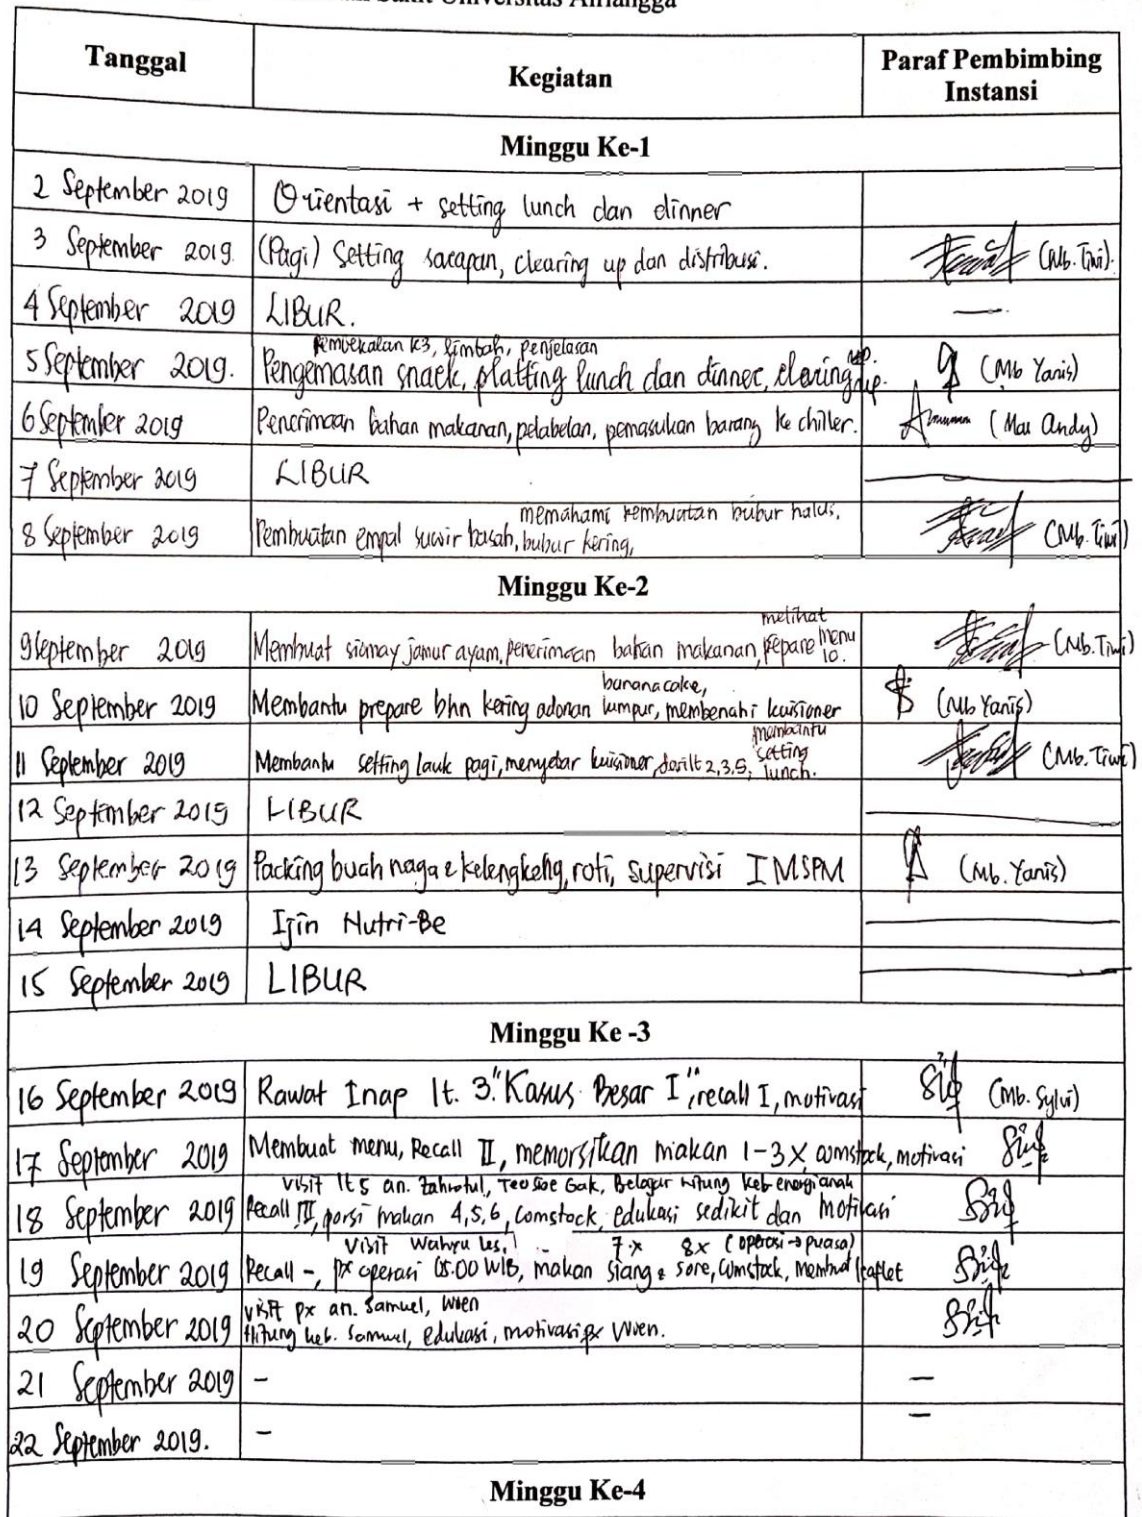 Sakit Universitas Airlangga
Tanggal Kegiatan Paraf Pembimbing Instansi
Minggu Ke-1
2 September 2019 Orientasi + setting lunch dan dinner
3 September 2019. (Pagi) Setting sarapan, clearing up dan distribusi. (Mb. Tiwi).
4 September 2019 LIBUR. —
pembekalan K3, limbah, penjelasan
5 September 2019. Pengemasan snack, platting lunch dan dinner, clearing up. (Mb Yanis)
6 September 2019 Penerimaan bahan makanan, pelabelan, pemasukan barang ke chiller. (Mas Andy)
7 September 2019 LIBUR
memahami pembuatan bubur halus.
8 September 2019 Pembuatan empal suwir basah, bubur kering, (Mb. Tiwi)
Minggu Ke-2
melihat
9 September 2019 Membuat siomay jamur ayam, penerimaan bahan makanan, prepare menu 10. (Mb. Tiwi)
banana cake,
10 September 2019 Membantu prepare bhn kering adonan lumpur, membenahi kuisioner (Mb Yanis)
membantu
11 September 2019 Membantu setting lauk pagi, menyebar kuisioner, 2,3,5, setting lunch. (Mb. Tiwi)
12 September 2019 LIBUR
13 September 2019 Packing buah naga & kelengkeng, roti, supervisi IMSPM (Mb. Yanis)
14 September 2019 Ijin Nutri-Be
15 September 2019 LIBUR
Minggu Ke -3
16 September 2019 Rawat Inap lt. 3. "Kasus Besar I", recall I, motivasi (Mb. Sylvi)
17 September 2019 Membuat menu, Recall II, memorsikan makan 1-3 x, comstock, motivasi
visit lt 5 an. Zahrotul, Teo Gak, Belajar hitung keb energi anak
18 September 2019 Recall III, porsi makan 4,5,6, comstock, edukasi sedikit dan motivasi
visit Wahyu Les, 7x 8x (operasi → puasa)
19 September 2019 Recall -, px operasi 05.00 WIB, makan siang & sore, comstock, membuat leaflet
visit px an. Samuel, Wien
20 September 2019 Hitung keb. Samuel, edukasi, motivasi px Wien.
21 September 2019 - —
22 September 2019. - —
Minggu Ke-4